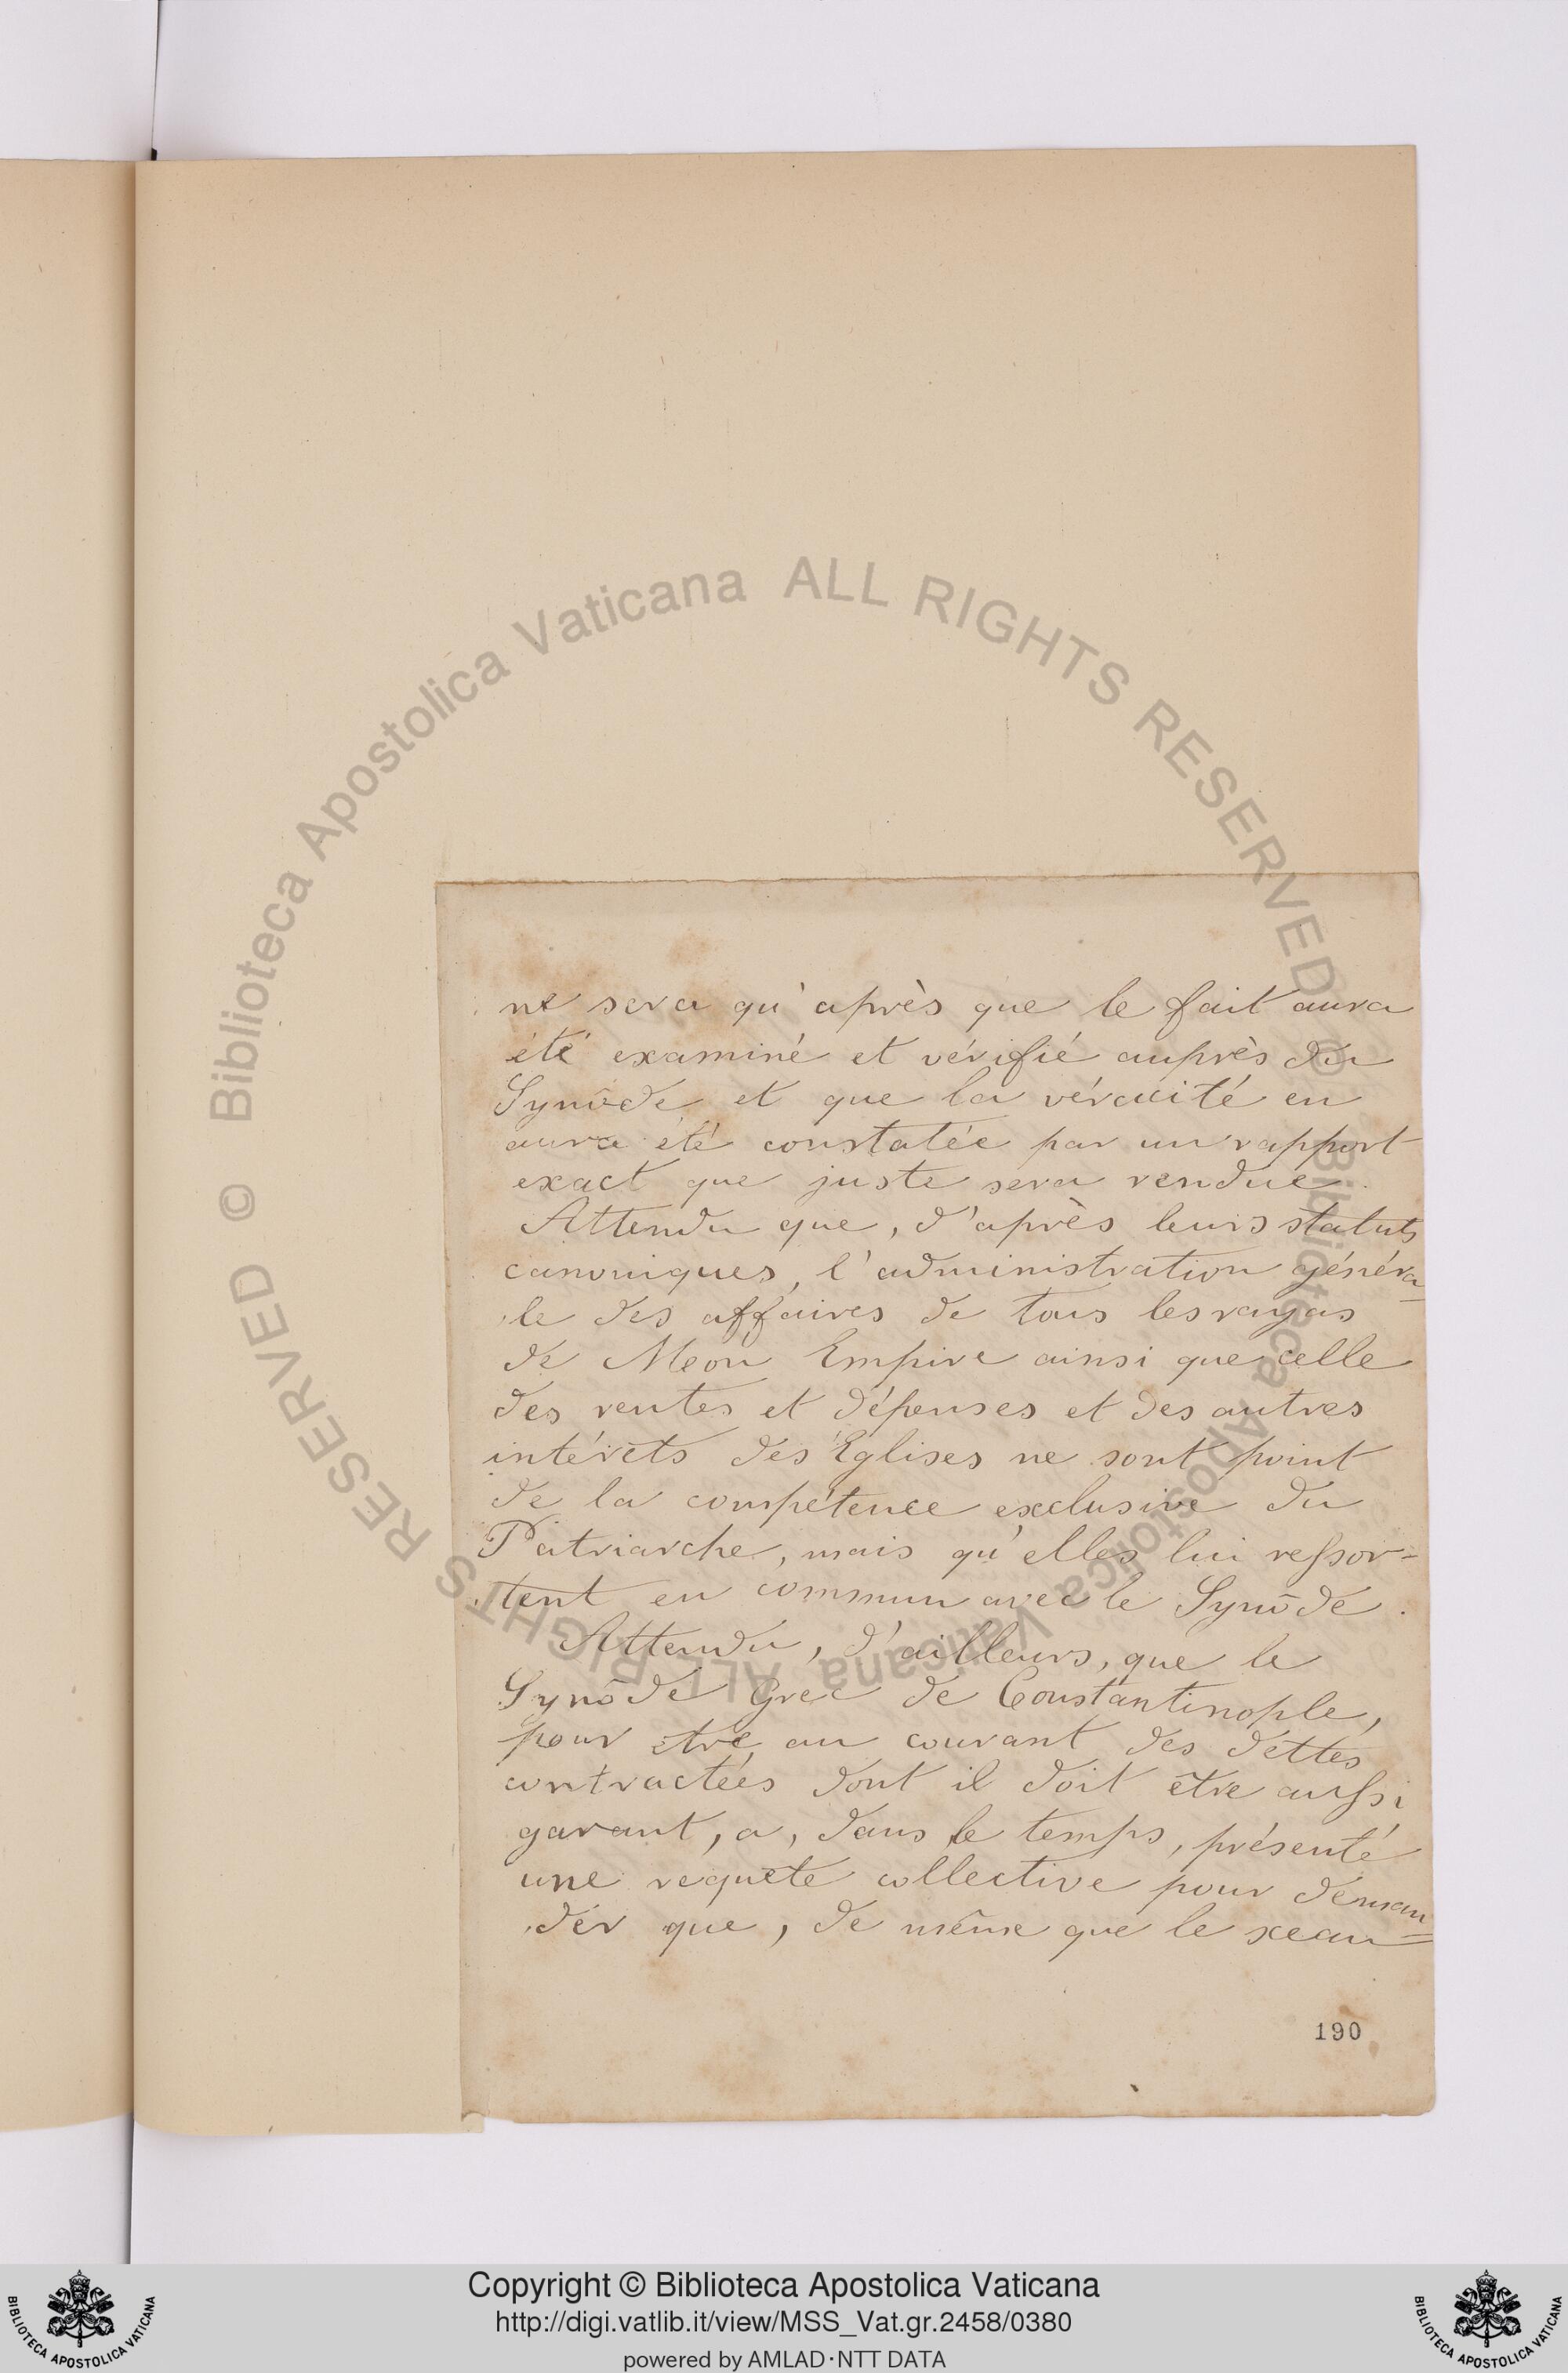 ne sera qu'après que le fait aura
été examiné et vérifié auprès du
Synôde et que la véracité en
aura été constatée par un rapport
exact que juste sera rendue.
Attendu que, d'après leurs statuts
canoniques, l'administration généra-
le des affaires de tous les rayas
de Mon Empire ainsi que celle
des rentes et dépenses et des autres
intérêts des Eglises ne sont point
de la compétence exclusive du
Patriarche, mais qu'elles lui ressor=
tent en commun avec le Synôde.
Attendu, d'ailleurs, que le
Synôde Grec de Constantinople,
pour etre au courant des dettes
contractées dont il doit être aussi
garant, a, dans le temps, présenté
une requête collective pour deman=
der que, de même que le sceau=
190
Biblioteca Apostolica Vaticana ALL RIGHTS RESERVED ©
Biblioteca Apostolica Vaticana ALL RIGHTS RESERVED ©
Copyright © Biblioteca Apostolica Vaticana
http://digi.vatlib.it/view/MSS_Vat.gr.2458/0380
powered by AMLAD·NTT DATA
BIBLIOTECA APOSTOLICA VATICANA
BIBLIOTECA APOSTOLICA VATICANA